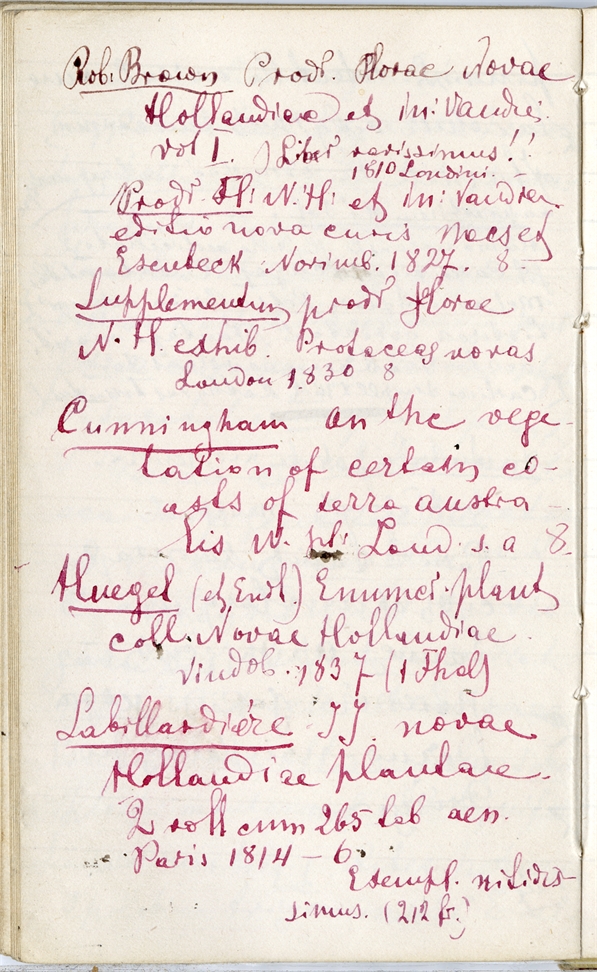 Rob: Brown Prodr. Florae Novae
Hollandiae et in: Vandie.
vol I. ) Liber rarissimus!!
1810 Londini.
Prodr. Fl: N. H: et in: Vandien.
editio nova curis Nees et
Esenbeck Norimb. 1827. 8
Supplementum prodr florae
N. H. exhib. Proteaceas novas
London 1830 8
Cunningham on the vege-
tation of certain co-
asts of terra austra-
lis W. pl: Lond. s. a 8.
Huegel (et Endl.) Enumer. plant
coll. Novae Hollandiae
Vindob. 1837 (1 Thal)
Labillardiére JJ. novae
Hollandiae plantae.
2 voll cum 265 tab aen.
Paris 1814 – 6
Exempl. nitidis-
simus. (212 fr.)